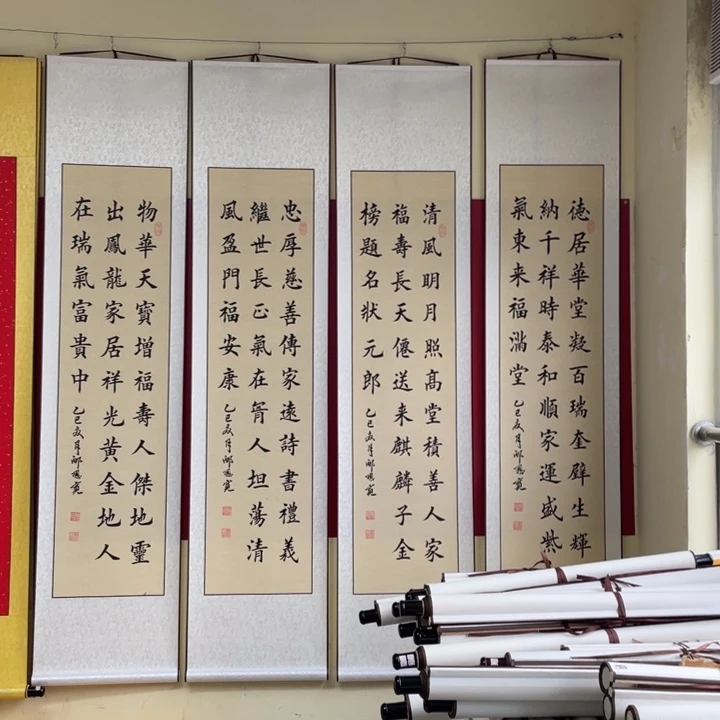 德居華堂凝百瑞奎壁生輝
納千祥時泰和順家運盛紫
氣東来福滿堂
乙巳夏月
清風明月照髙堂積善人家
福壽長天僊送来麒麟子金
榜題名狀元郎
乙巳夏月
忠厚慈善傳家遠詩書禮義
繼世長正氣在胷人坦蕩清
風盈門福安康
乙巳夏月
物華天寶增福壽人傑地靈
出鳳龍家居祥光黃金地人
在瑞氣富貴中
乙巳夏月